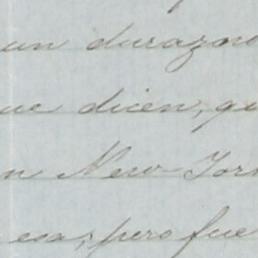 un durazno
ue dicen, qu
n New-York
esa; pero fue